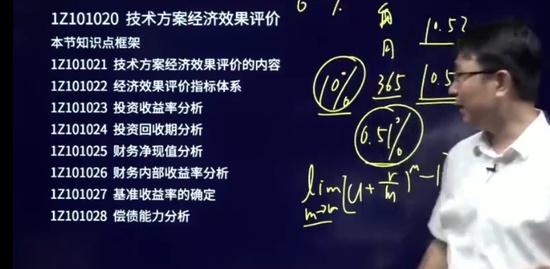 1Z101020 技术方案经济效果评价
本节知识点框架
1Z101021 技术方案经济效果评价的内容
1Z101022 经济效果评价指标体系
1Z101023 投资收益率分析
1Z101024 投资回收期分析
1Z101025 财务净现值分析
1Z101026 财务内部收益率分析
1Z101027 基准收益率的确定
1Z101028 偿债能力分析
月
10%
365
10.5
0.51%
lim